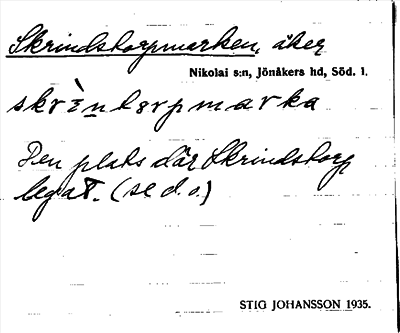 Skrindstorpmarken, åker
Nikolai s:n, Jönåkers hd, Söd. l.
skrὶntorpmarka
Den plats där Skrindstorp
legat. (se d. o.)
STIG JOHANSSON 1935.